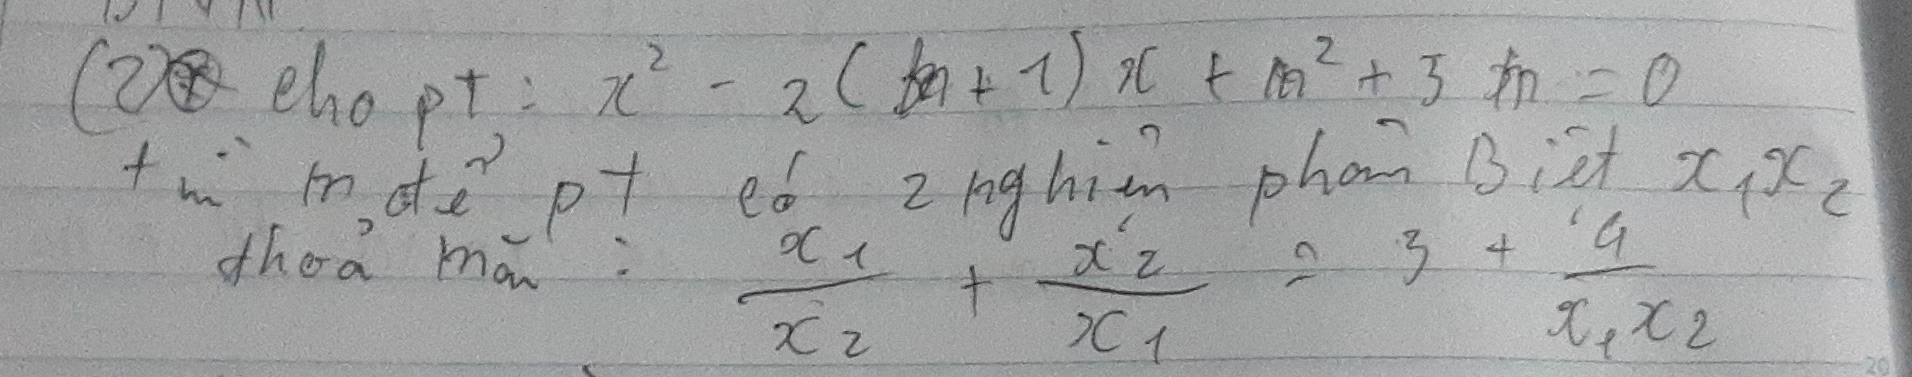 (2) cho pt : x² - 2(m+1)x + m² + 3m = 0
tìm m để pt có 2 nghiệm phân Biệt x₁x₂
thoả mãn : x₁/x₂ + x₂/x₁ = 3 + 4/x₁x₂